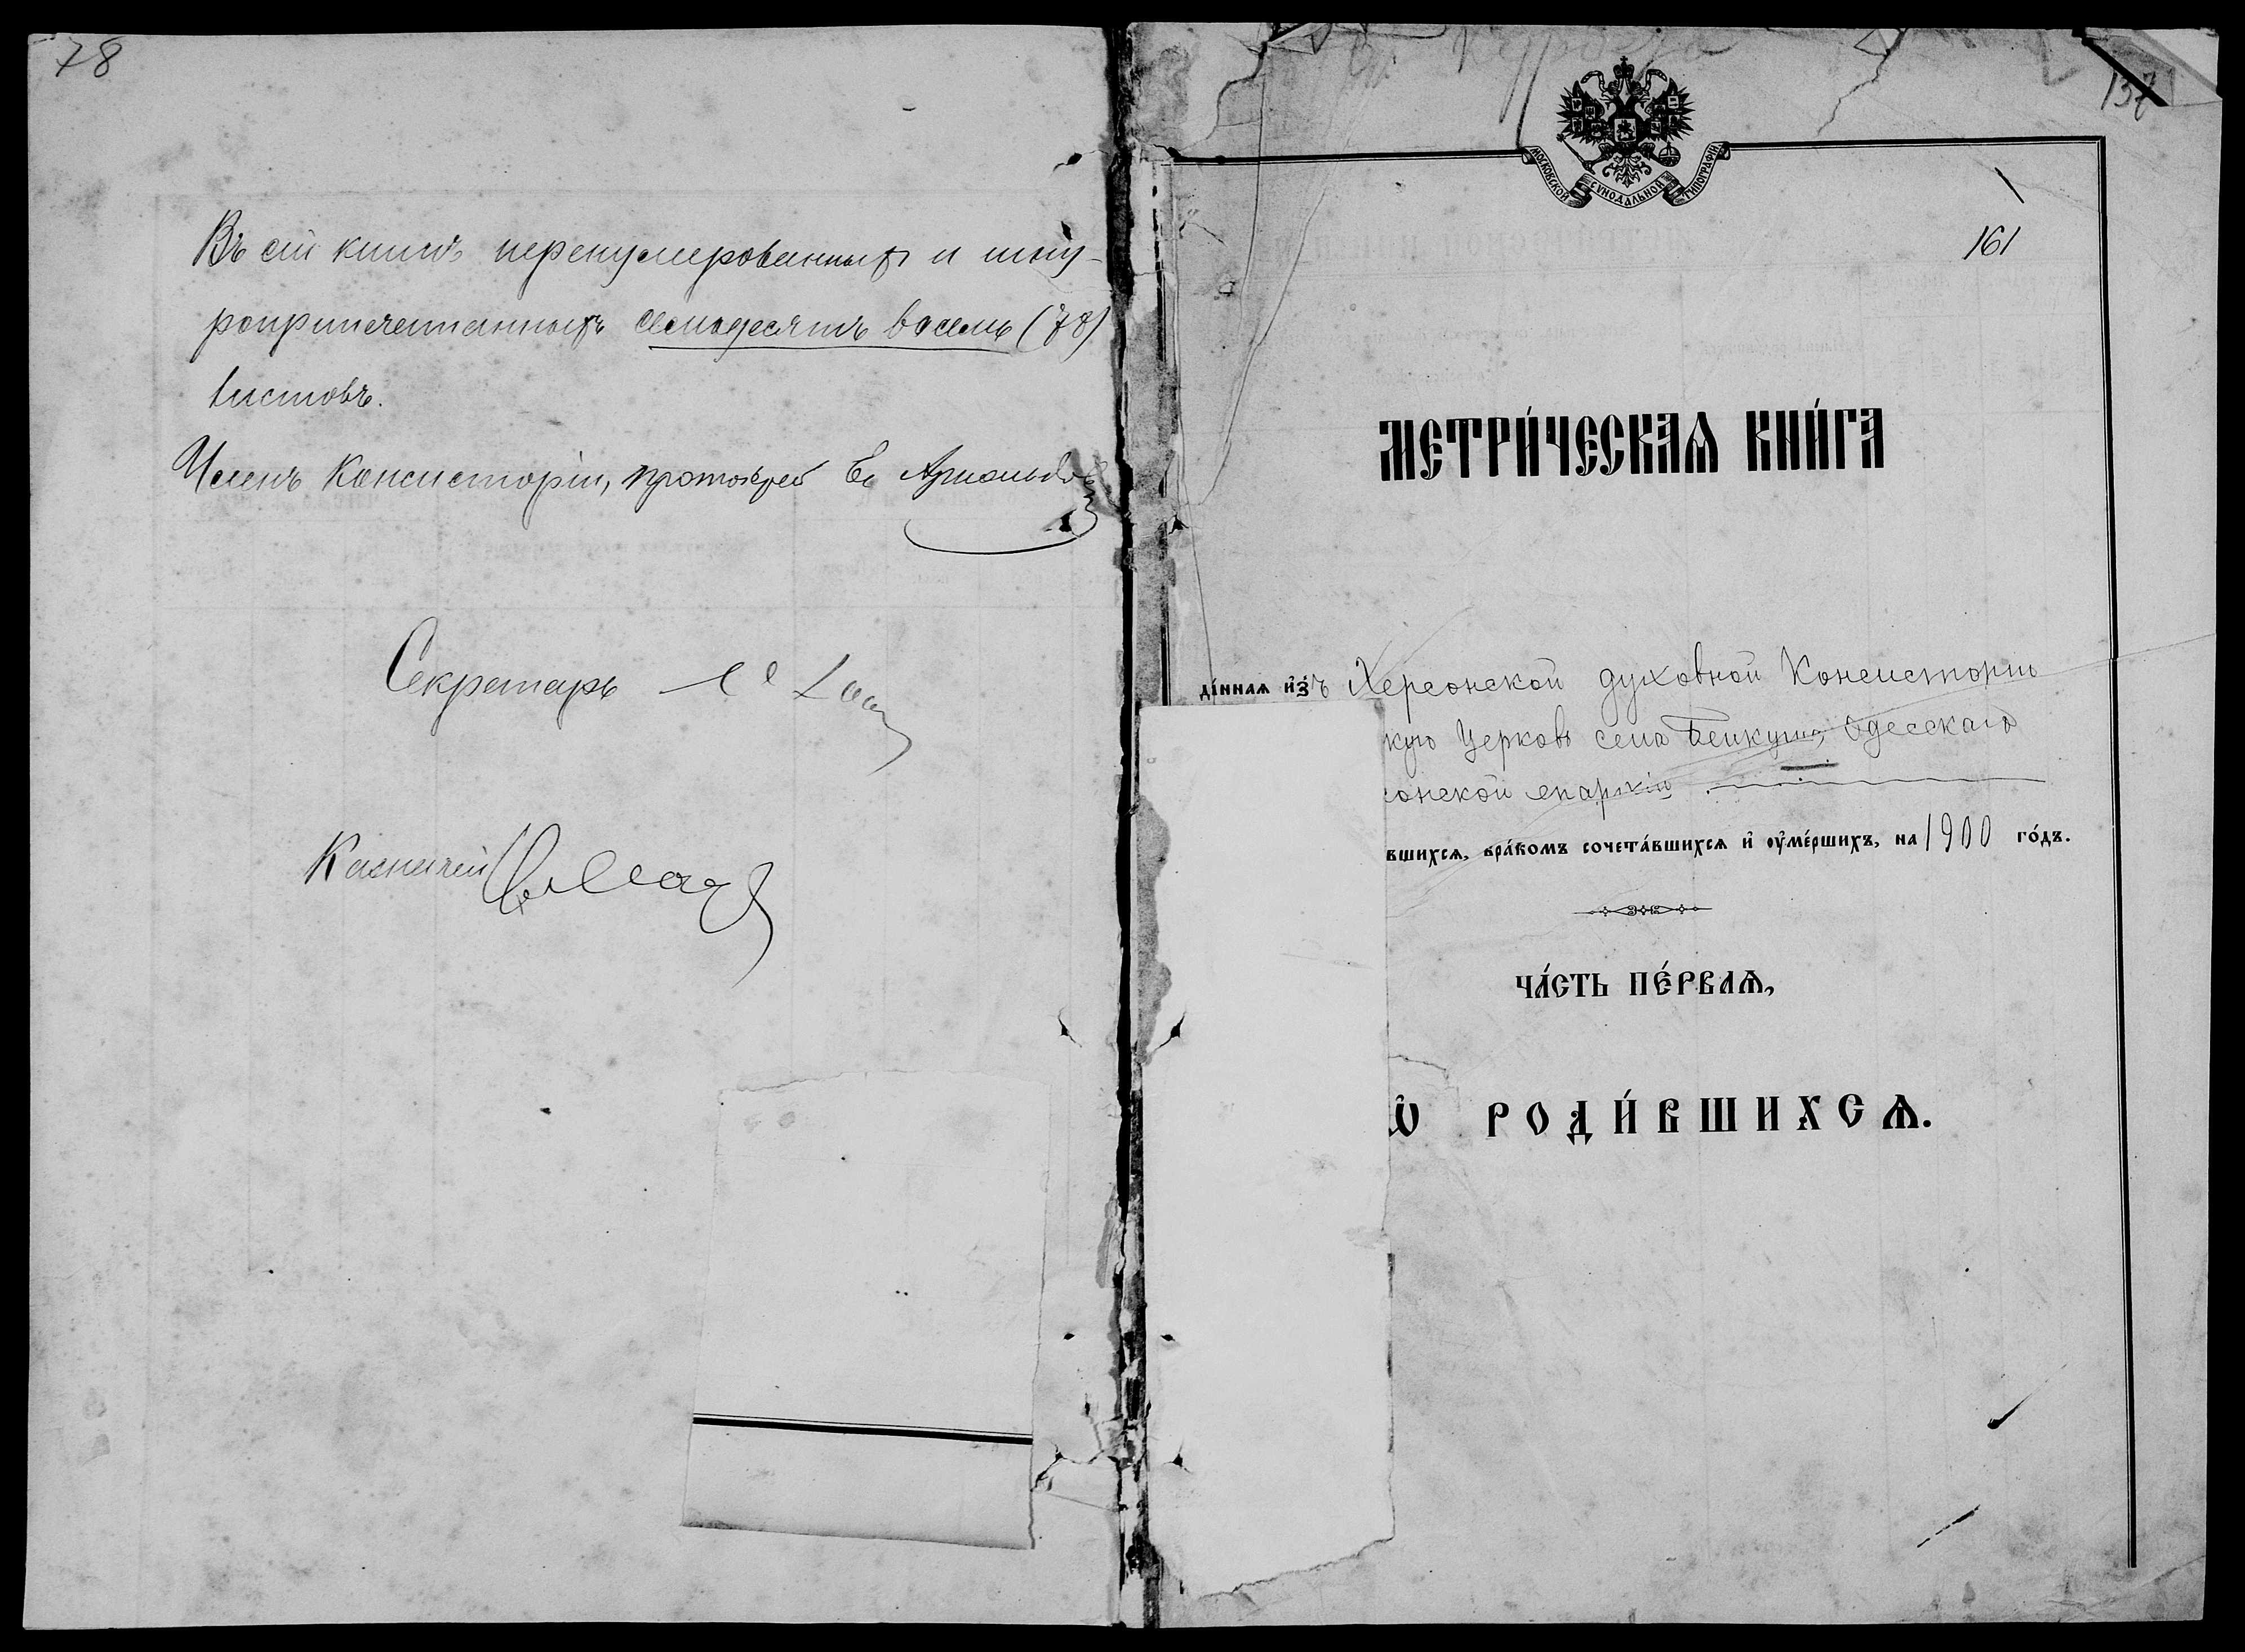 78
Въ сій книгѣ перенумерованныхъ и шну-
роприпечатанныхъ семьдесятъ восемь (78)
листовъ.
Членъ Консисторіи, протоіерей
Секретарь
Казначей
137
МОСКОВСКОЙ СѴНОДАЛЬНОЙ ТИПОГРАФІИ
161
МЕТРИ́ЧЕСКАѦ КНИ́ГА
да́ннаѧ и҆зъ Херсонской духовной Консисторіи
кую Церковь села Бейкуша, Одесскаго
сонской епархіи
вшихсѧ, бра́комъ сочета́вшихсѧ и҆ ᲂу҆ме́ршихъ, на 1900 го́дъ.
ЧА́СТЬ ПЕ́РВАѦ,
Ѡ҆ РОДИ́ВШИХСѦ.